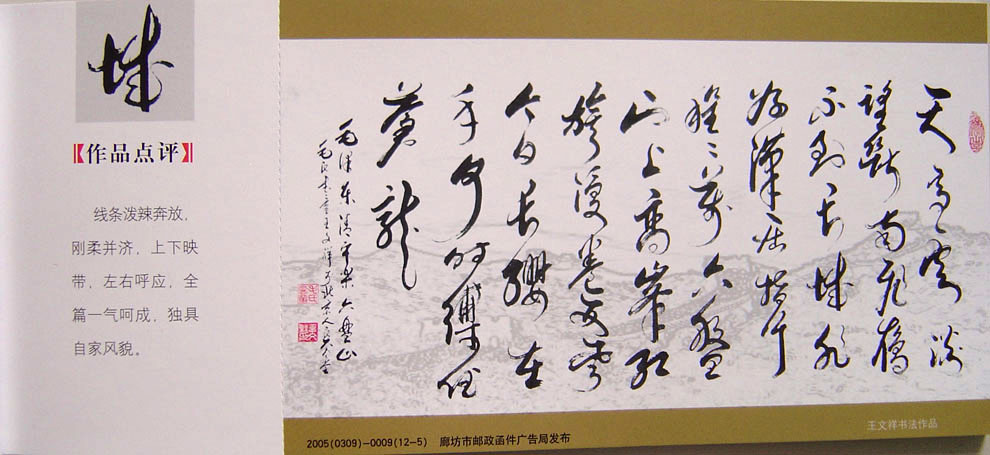 城
【作品点评】
线条泼辣奔放，
刚柔并济，上下映
带，左右呼应，全
篇一气呵成，独具
自家风貌。
天高雲淡
望斷南飛雁
不到长城非
好漢屈指行
程二万六盘
山上高峰红
旗漫卷西风
今日长缨在
手何时缚住
苍龙
毛泽东清平乐六盘山
王文祥书法作品
2005(0309)-0009(12-5) 廊坊市邮政函件广告局发布